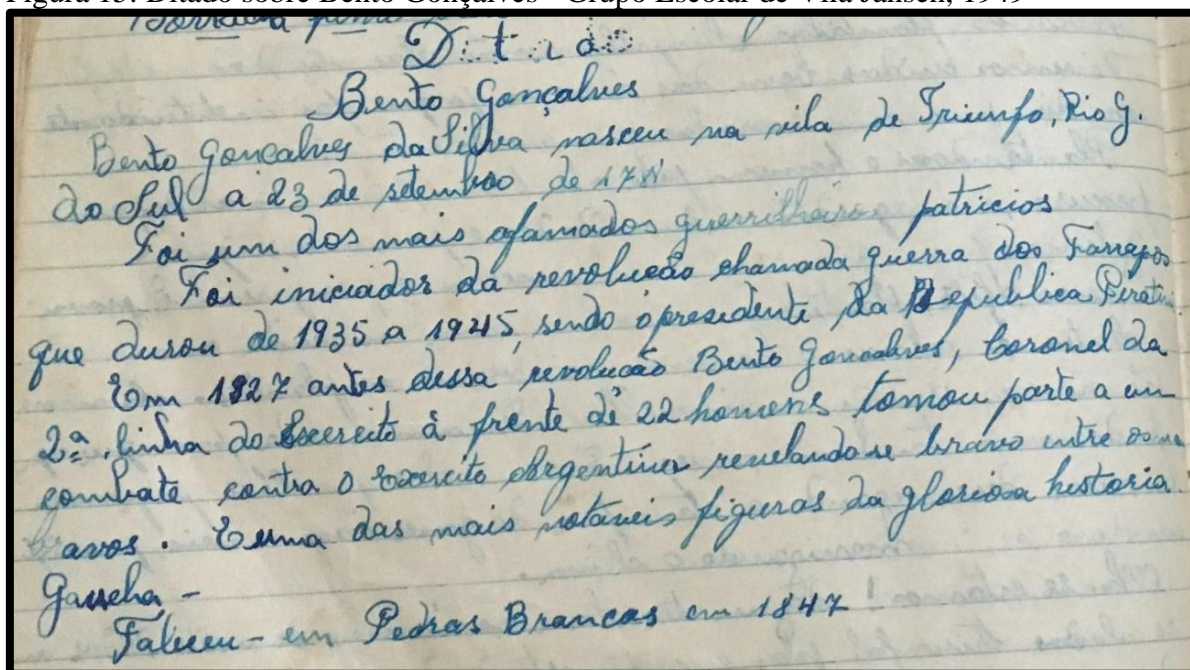 Figura 15: Ditado sobre Bento Gonçalves - Grupo Escolar de Vila Jansen, 1949
Ditado
Bento Gonçalves
Bento Goncalves da Silva nasceu na vila de Triunfo, Rio G.
do Sul a 23 de setembro de 178
Foi um dos mais afamados guerrilheiros patricios
Foi iniciador da revolucão chamada guerra dos Farrapos
que durou de 1935 a 1945, sendo o presidente da Republica Piratini
Em 1827 antes dessa revolucão Bento Goncalves, Coronel da
2ª. linha do Exercito à frente de 22 homens tomou parte a um
combate contra o Exercito Argentino revelando se bravo entre os
bravos. E uma das mais notaveis figuras da gloriosa historia
Gaucha -
Faleceu - em Pedras Brancas em 1847